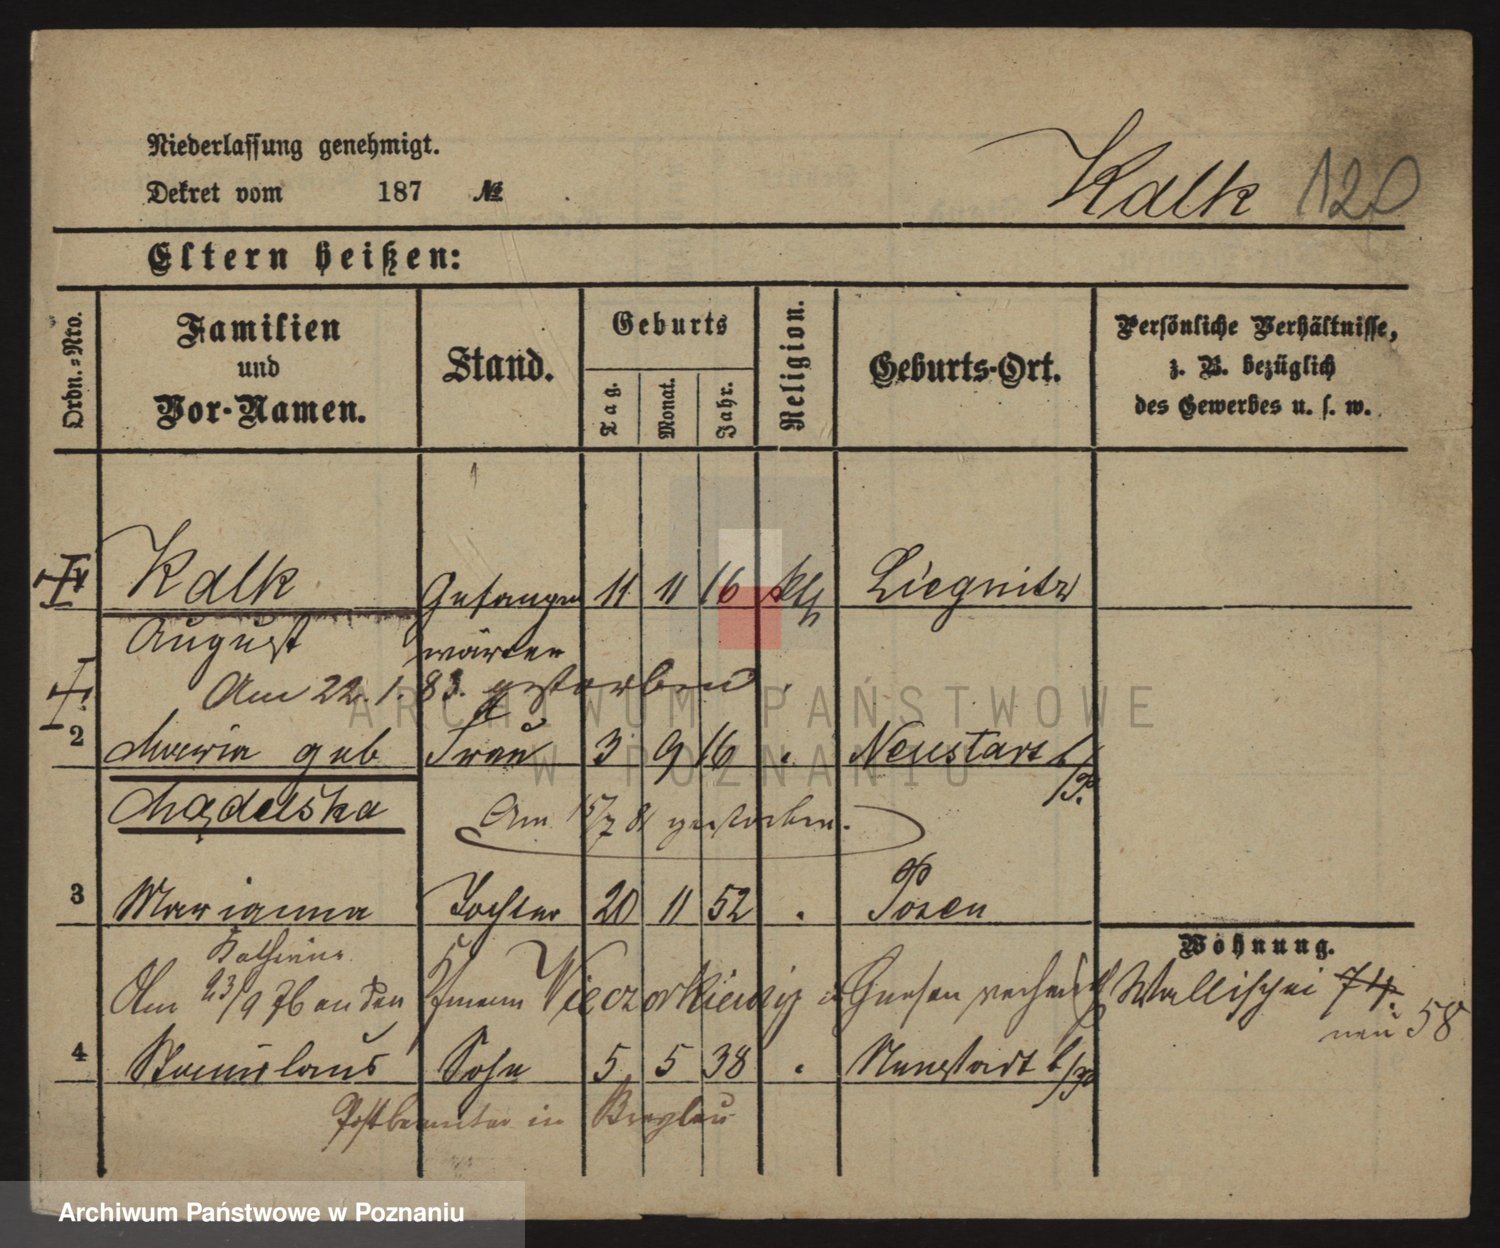 Niederlassung genehmigt.
Dekret vom 187 №
Kalk 120
Eltern heißen:
Ordn.=Nro.
Familien und Vor-Namen.
Stand.
Geburts
Tag. Monat. Jahr.
Religion.
Geburts-Ort.
Persönliche Verhältnisse,
z. B. bezüglich
des Gewerbes u. s. w.
Kalk Gefangen 11 11 16 kth Liegnitz
August wärter
Am 22. 1. 83. gestorben.
2 Maria geb Frau 3 9 16 . Neustadt b/P.
Mądelska
Am 15/7 81 gestorben.
3 Marianna Tochter 20 11 52 . Posen
Wohnung.
Katharina
Am 23/9 76 an den Kfmann Wieczorkiewicz Gnesen verheir
Wallischei 74.
neu 58
4 Stanislaus Sohn 5 5 38 . Neustadt b/P
Postbeamter in Breslau
ARCHIWUM PAŃSTWOWE
W POZNANIU
Archiwum Państwowe w Poznaniu